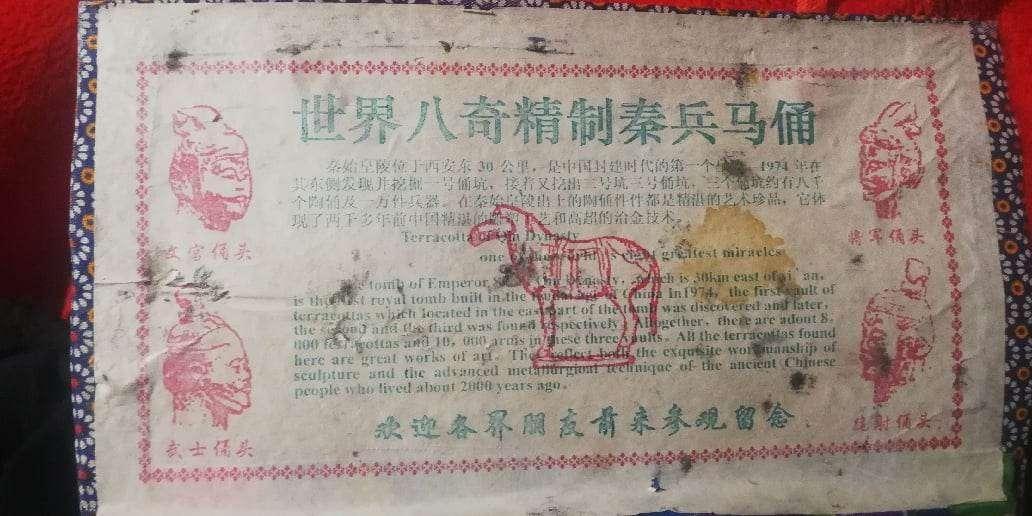 世界八奇精制秦兵马俑
秦始皇陵位于西安东30公里，是中国封建时代的第一个 1974年在
其东侧发现并挖掘一号俑坑，接着又挖出二号坑三号俑坑，三个 坑约有八千
个陶俑及一万件兵器。在秦始皇陵出土的陶俑件件都是精湛的艺术珍品，它体
现了两千多年前中国精湛的 艺和高超的冶金技术。
Terracotta of Qin Dynasty
one of the world's eight greatest miracles
tomb of Emperor which is 30km east of xi' an,
is the first royal tomb built in the China In1974, the first vault of
terracottas which located in the east part of the tomb was discovered and later,
the second and the third was found respectively. Altogether, there are adout 8,
000 terracottas and 10, 000 arms in these three vaults. All the terracottas found
here are great works of art. They reflect both the exquisite workmanship of
sculpture and the advanced metallurgical technique of the ancient Chinese
people who lived about 2000 years ago.
欢迎各界朋友前来参观留念
文官俑头
将军俑头
武士俑头
跪射俑头